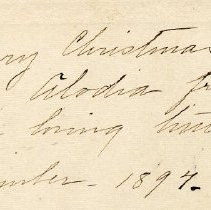 ry Christmas
Alodia fr
loving
mber - 1897.